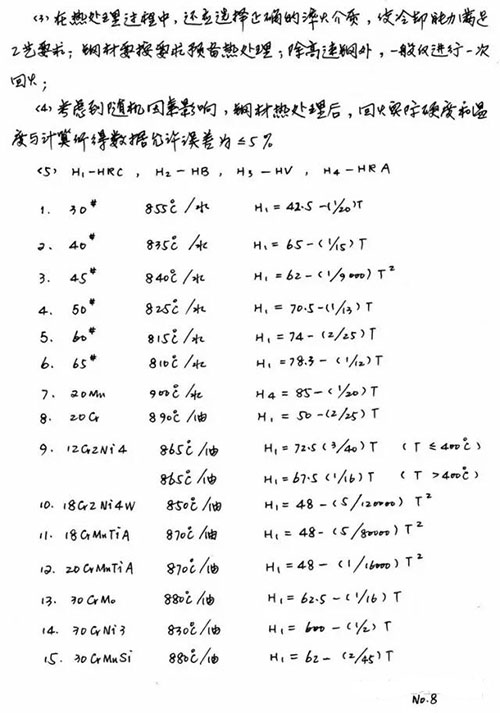 (3) 在热处理过程中,还应选择正确的淬火介质,使冷却能力满足
工艺要求;钢材要按要求预备热处理;除高速钢外,一般仅进行一次
回火;
(4) 考虑到随机因素影响,钢材热处理后,回火实际硬度和温
度与计算所得数据允许误差为≤5%
(5) H₁-HRC, H₂-HB, H₃-HV, H₄-HRA
1. 30# 855℃/水 H₁=42.5-(1/20)T
2. 40# 835℃/水 H₁=65-(1/15)T
3. 45# 840℃/水 H₁=62-(1/9000)T²
4. 50# 825℃/水 H₁=70.5-(1/13)T
5. 60# 815℃/水 H₁=74-(2/25)T
6. 65# 810℃/水 H₁=78.3-(1/12)T
7. 20Mn 900℃/水 H4=85-(1/20)T
8. 20Cr 890℃/油 H₁=50-(2/25)T
9. 12Cr2Ni4 865℃/油 H₁=72.5(3/40)T (T≤400℃)
865℃/油 H₁=67.5(1/16)T (T>400℃)
10. 18Cr2Ni4W 850℃/油 H₁=48-(5/120000)T²
11. 18CrMnTiA 870℃/油 H₁=48-(5/80000)T²
12. 20CrMnTiA 870℃/油 H₁=48-(1/16000)T²
13. 30CrMo 880℃/油 H₁=62.5-(1/16)T
14. 30CrNi3 830℃/油 H₁=600-(1/2)T
15. 30CrMnSi 880℃/油 H₁=62-(2/45)T
No.8